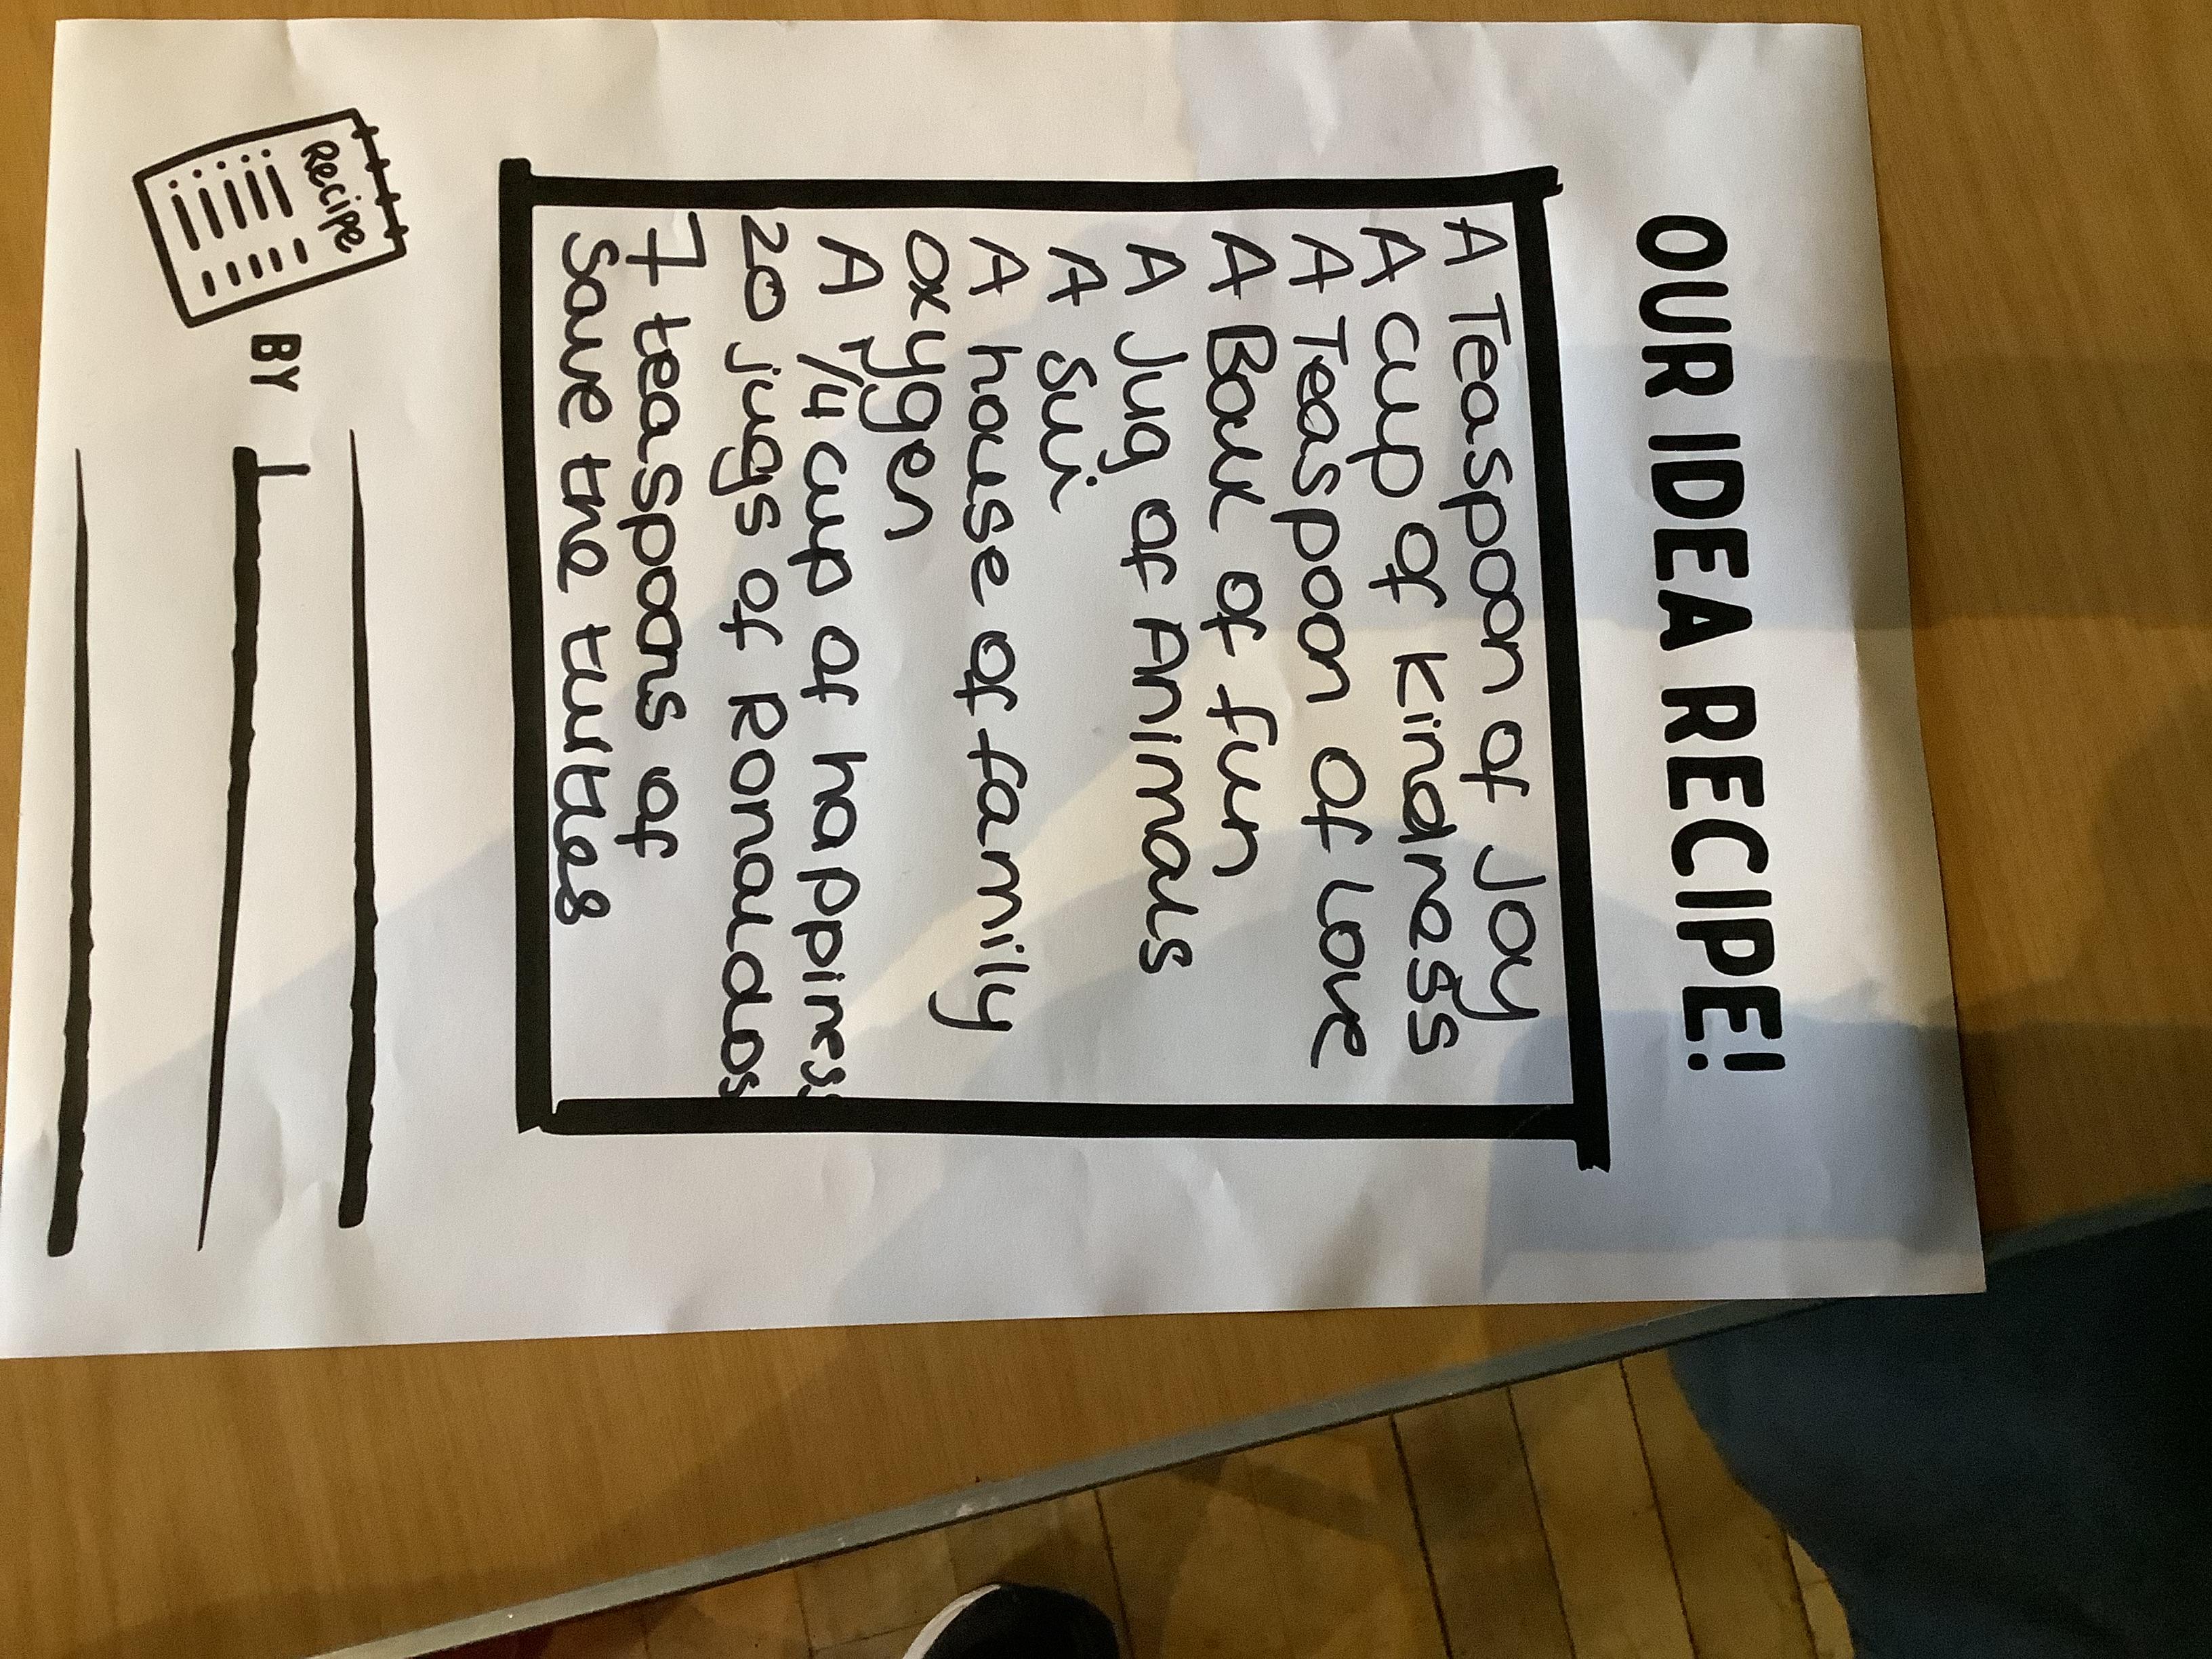 OUR IDEA RECIPE!
A Teaspoon of Joy
A cup of kindness
A Teaspoon of Love
A Boul of fun
A Jug of Animals
A Sui
A house of familly
oxygen
A 1/4 cup of happines
20 jugs of Ronaldos
7 teaspoons of
Save the turtles
Recipe
BY
L